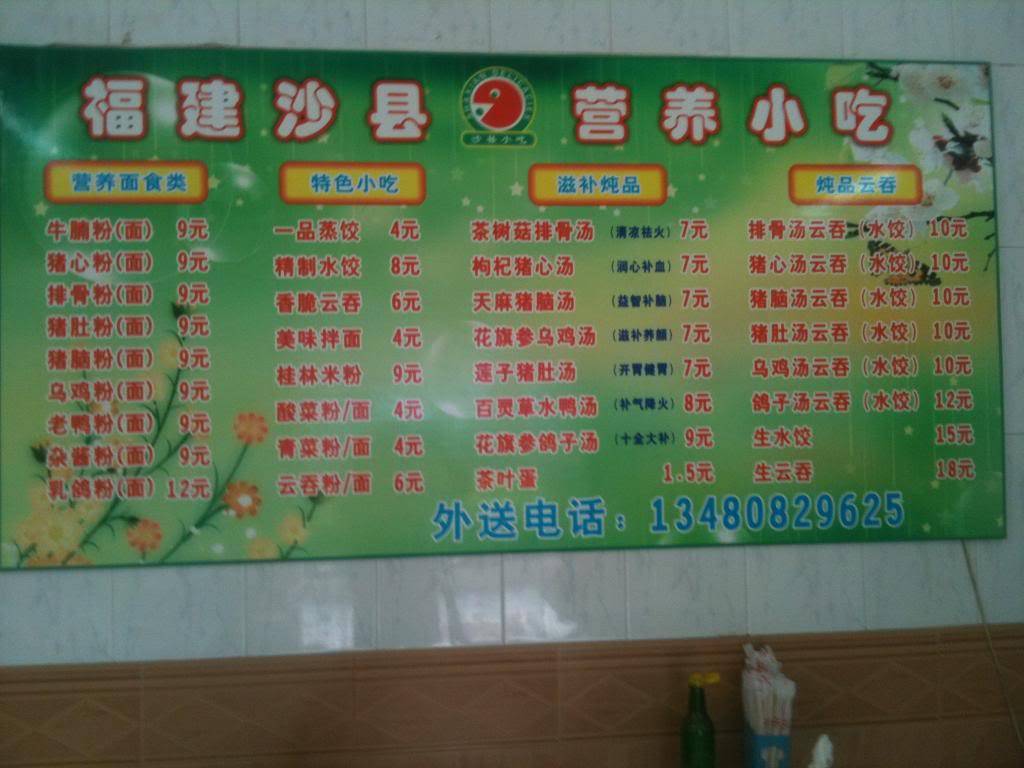 福建沙县 营养小吃
沙县小吃
营养面食类
牛腩粉(面) 9元
猪心粉(面) 9元
排骨粉(面) 9元
猪肚粉(面) 9元
猪脑粉(面) 9元
乌鸡粉(面) 9元
老鸭粉(面) 9元
杂酱粉(面) 9元
乳鸽粉(面) 12元
特色小吃
一品蒸饺 4元
精制水饺 8元
香脆云吞 6元
美味拌面 4元
桂林米粉 9元
酸菜粉/面 4元
青菜粉/面 4元
云吞粉/面 6元
滋补炖品
茶树菇排骨汤 (清凉祛火) 7元
枸杞猪心汤 (润心补血) 7元
天麻猪脑汤 (益智补脑) 7元
花旗参乌鸡汤 (滋补养颜) 7元
莲子猪肚汤 (开胃健胃) 7元
百灵草水鸭汤 (补气降火) 8元
花旗参鸽子汤 (十全大补) 9元
茶叶蛋 1.5元
炖品云吞
排骨汤云吞 (水饺) 10元
猪心汤云吞 (水饺) 10元
猪脑汤云吞 (水饺) 10元
猪肚汤云吞 (水饺) 10元
乌鸡汤云吞 (水饺) 10元
鸽子汤云吞 (水饺) 12元
生水饺 15元
生云吞 18元
外送电话：13480829625